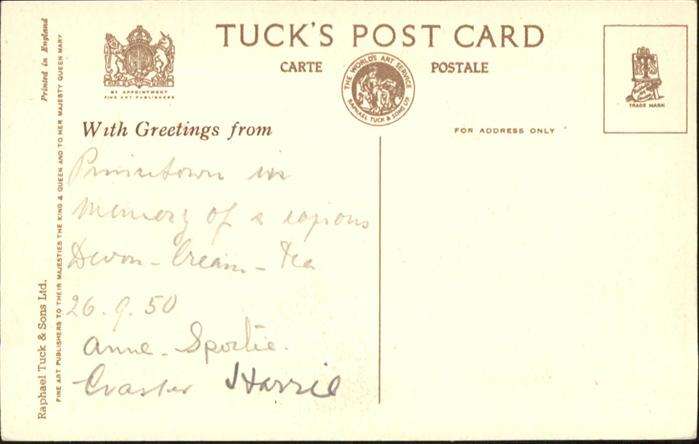 TUCK'S POST CARD
CARTE POSTALE
THE WORLD'S ART SERVICE
RAPHAEL TUCK & SONS LTD
BY APPOINTMENT
FINE ART PUBLISHERS
TRADE MARK
Printed in England
With Greetings from
FOR ADDRESS ONLY
Princetown in
Memory of a copious
Devon - Cream - Tea
26.9.50
Anne. Sportie.
Harrie
Raphael Tuck & Sons Ltd.
FINE ART PUBLISHERS TO THEIR MAJESTIES THE KING & QUEEN AND TO HER MAJESTY QUEEN MARY